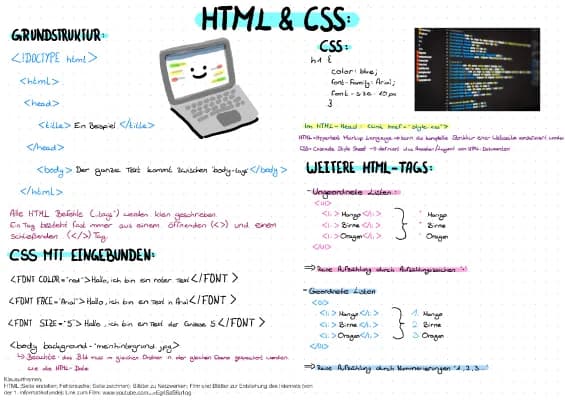 HTML & CSS:
GRUNDSTRUKTUR:
<!DOCTYPE html>
<html>
<head>
<title> Ein Beispiel </title>
</head>
<body> Der ganze Text kommt zwischen "body-tags" </body>
</html>
Alle HTML Befehle ("tags") werden klein geschrieben.
Ein Tag besteht fast immer aus einem öffnenden (<>) und einem
schließenden (</>) Tag.
CSS MIT EINGEBUNDEN:
<FONT COLOR="red"> Hallo, ich bin ein roter Text </FONT>
<FONT FACE="Arial"> Hallo, ich bin ein Text in Arial </FONT>
<FONT SIZE="5"> Hallo, ich bin ein Text der Grösse 5 </FONT>
<body background="meinhintergrund.jpg">
↳ Beachte: das Bild muss im gleichen Ordner in der gleichen Ebene gespeichert werden
wie die HTML-Datei
Klausurthemen:
HTML (Seite erstellen; Fehlersuche; Seite zeichnen); Bilder zu Netzwerken; Film und Blätter zur Entstehung des Internets (von
der 1. Informatikstunde); Link zum Film:
CSS:
h1 {
color: blue;
font-family: Arial;
font-size: 10px
}
Im HTML-Head: <link href="style.css">
HTML = Hypertext Markup Language
CSS = Cascade Style Sheet
WEITERE HTML-TAGS:
- Ungeordnete Listen:
<ul>
<li> Mango </li>
<li> Birne </li>
<li> Orangen </li>
</ul>
• Mango
• Birne
• Orangen
⇒ Reine Aufzählung durch Aufzählungszeichen
- Geordnete Listen
<ol>
<li> Mango </li>
<li> Birne </li>
<li> Orangen </li>
</ol>
1. Mango
2. Birne
3. Orangen
⇒ Reine Aufzählung durch Nummerierungen "1, 2, 3"